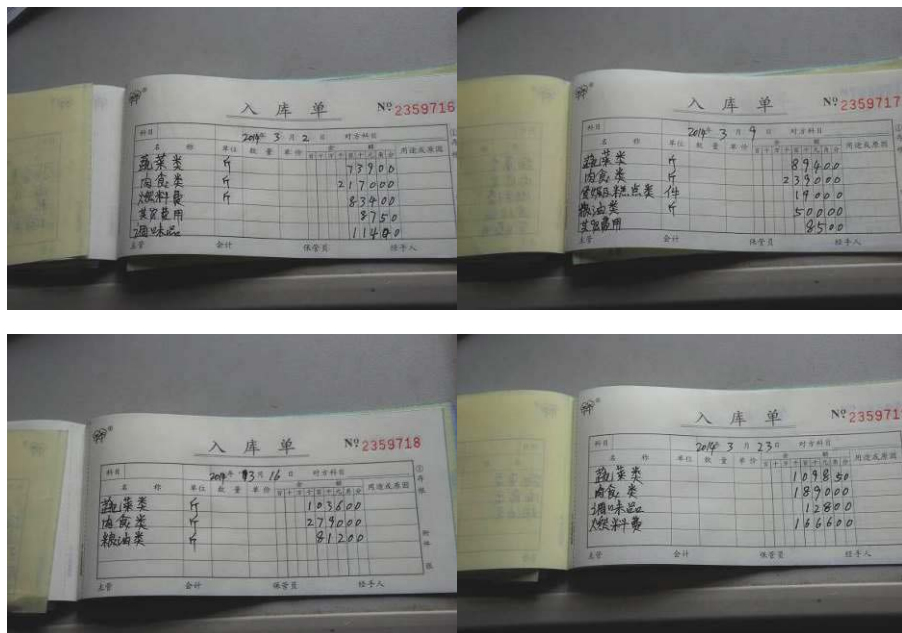 入库单 №2359716
科目 2014年 3月 2日 对方科目
名称 单位 数量 单价 金额 用途或原因
百十万千百十元角分
蔬菜类 斤 73900
肉食类 斤 217000
燃料费 斤 83400
其它费用 8750
调味品 11400
主管 会计 保管员 经手人
入库单 №2359717
科目 2014年 3月 9日 对方科目
名称 单位 数量 单价 金额 用途或原因
百十万千百十元角分
蔬菜类 斤 89400
肉食类 斤 239000
糕点类 件 19000
粮油类 斤 50000
其它费用 8500
主管 会计 保管员 经手人
入库单 №2359718
科目 2014年 3月 16日 对方科目
名称 单位 数量 单价 金额 用途或原因
百十万千百十元角分
蔬菜类 斤 103600
肉食类 斤 279000
粮油类 斤 81200
主管 会计 保管员 经手人
入库单 №235971
科目 2014年 3月 23日 对方科目
名称 单位 数量 单价 金额 用途或原因
百十万千百十元角分
蔬菜类 109850
肉食类 189000
调味品 12800
燃料费 166600
主管 会计 保管员 经手人